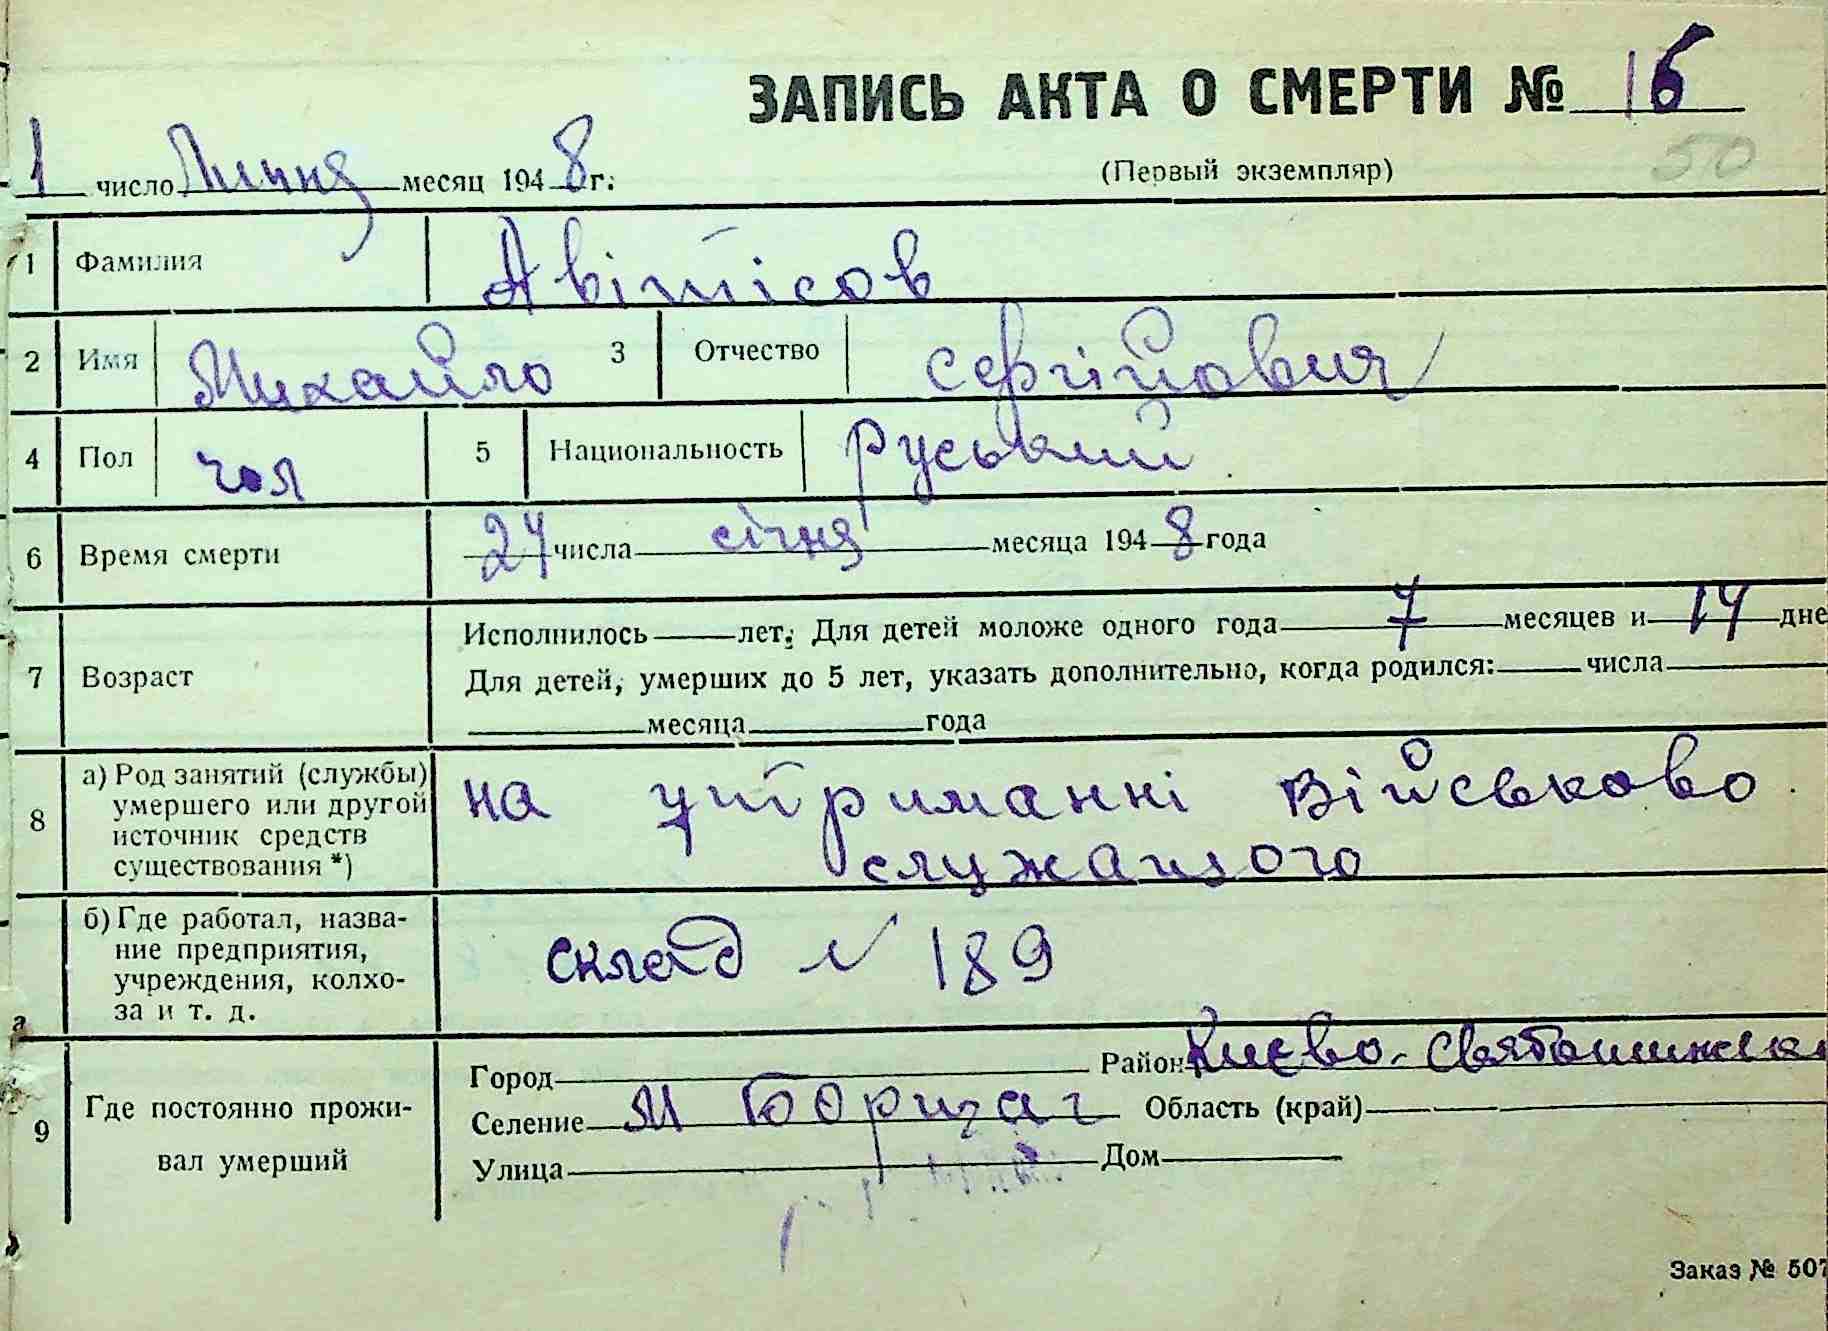 ЗАПИСЬ АКТА О СМЕРТИ № 16
50
1 число Липня месяц 1948 г.
(Первый экземпляр)
1 Фамилия Авітісов
2 Имя Михайло 3 Отчество Сергійович
4 Пол чол 5 Национальность Руський
6 Время смерти 24 числа січня месяца 1948 года
7 Возраст
Исполнилось лет. Для детей моложе одного года 7 месяцев и 14 дне
Для детей, умерших до 5 лет, указать дополнительно, когда родился: числа
месяца года
8 а) Род занятий (службы) умершего или другой источник средств существования *)
на утриманні Військово
служащого
б) Где работал, назва-
ние предприятия,
учреждения, колхо-
за и т. д.
склад № 189
9 Где постоянно прожи-
вал умерший
Город Район Києво-Святошинськ
Селение М Борщаг Область (край)
Улица Дом
Заказ № 507